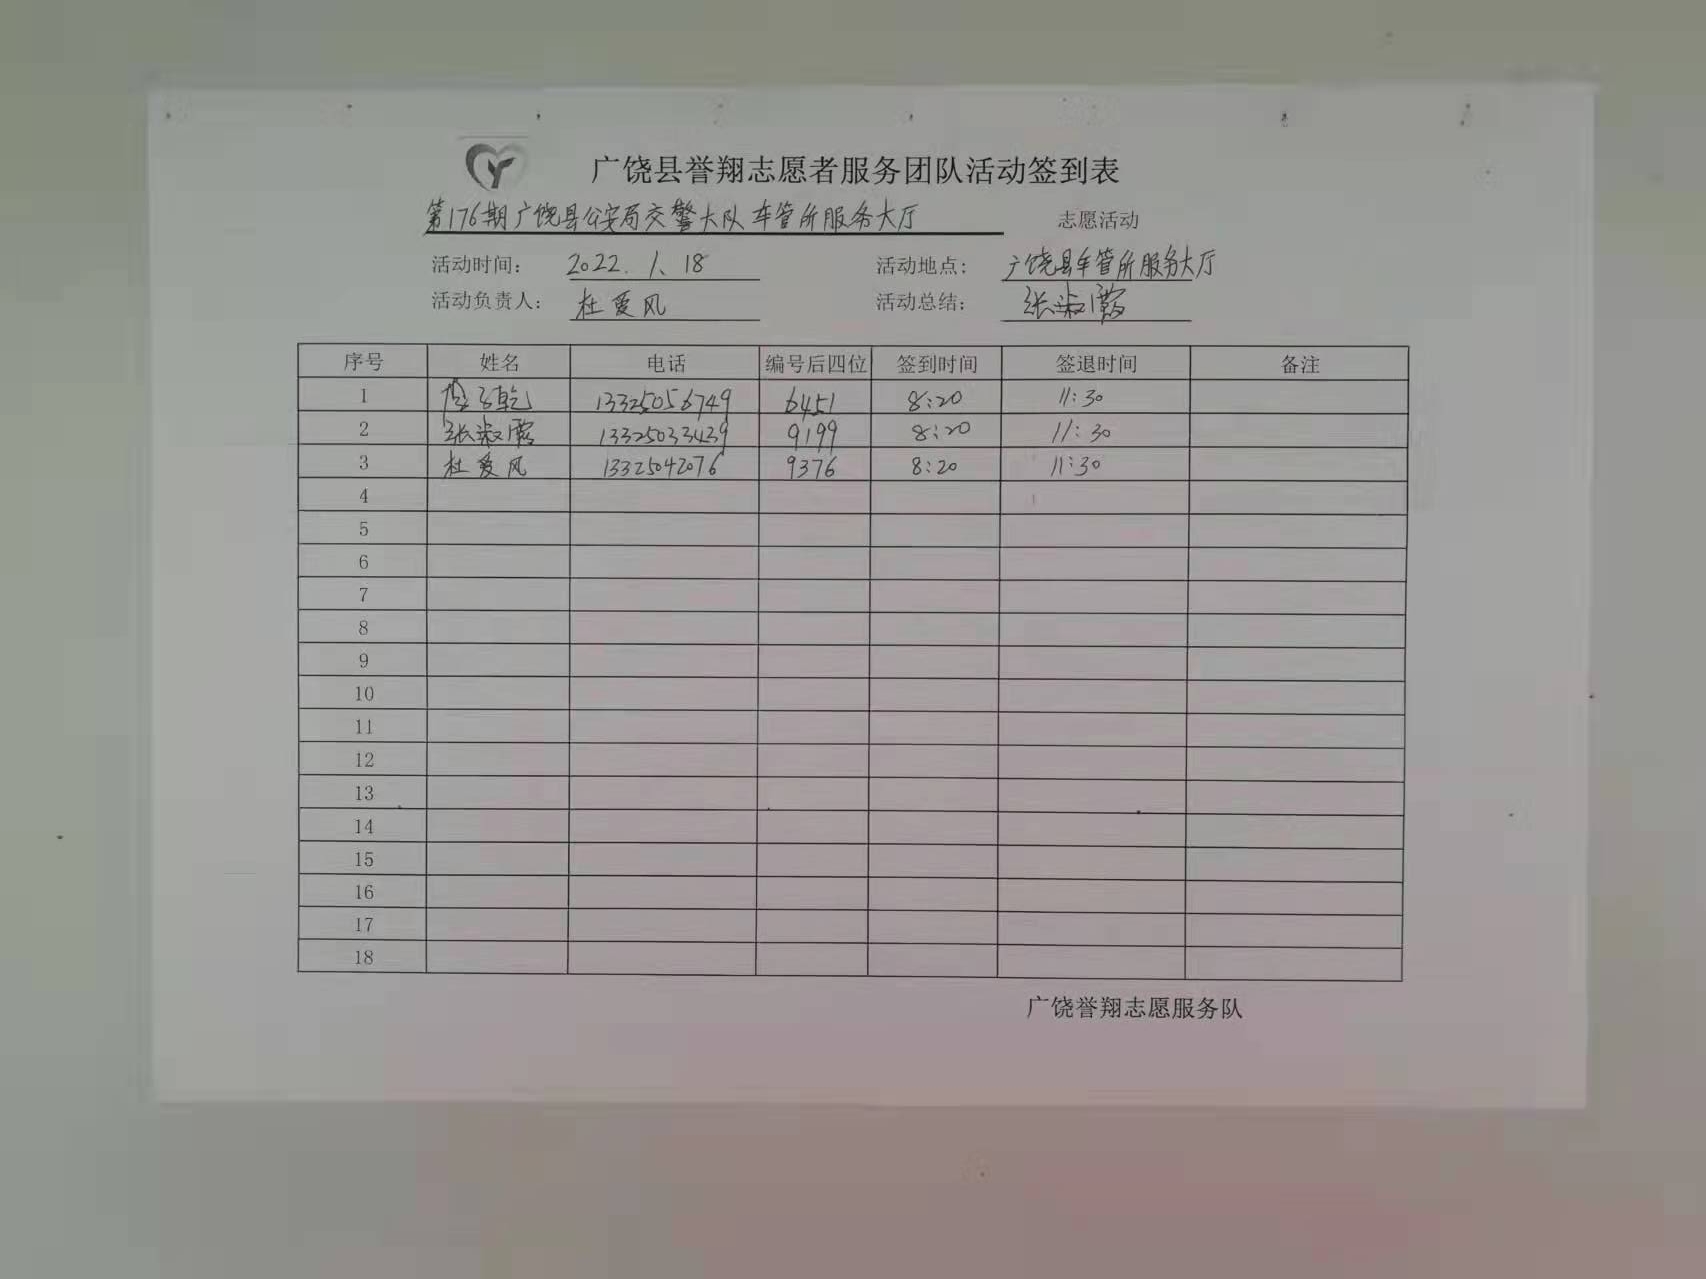 广饶县誉翔志愿者服务团队活动签到表
第176期广饶县公安局交警大队车管所服务大厅 志愿活动
活动时间： 2022.1.18 活动地点： 广饶县车管所服务大厅
活动负责人： 杜爱风 活动总结： 张淑霞
序号 姓名 电话 编号后四位 签到时间 签退时间 备注
1 13325056749 6451 8:20 11:30
2 张淑霞 13325033439 9199 8:20 11:30
3 杜爱风 13325042076 9376 8:20 11:30
4
5
6
7
8
9
10
11
12
13
14
15
16
17
18
广饶誉翔志愿服务队